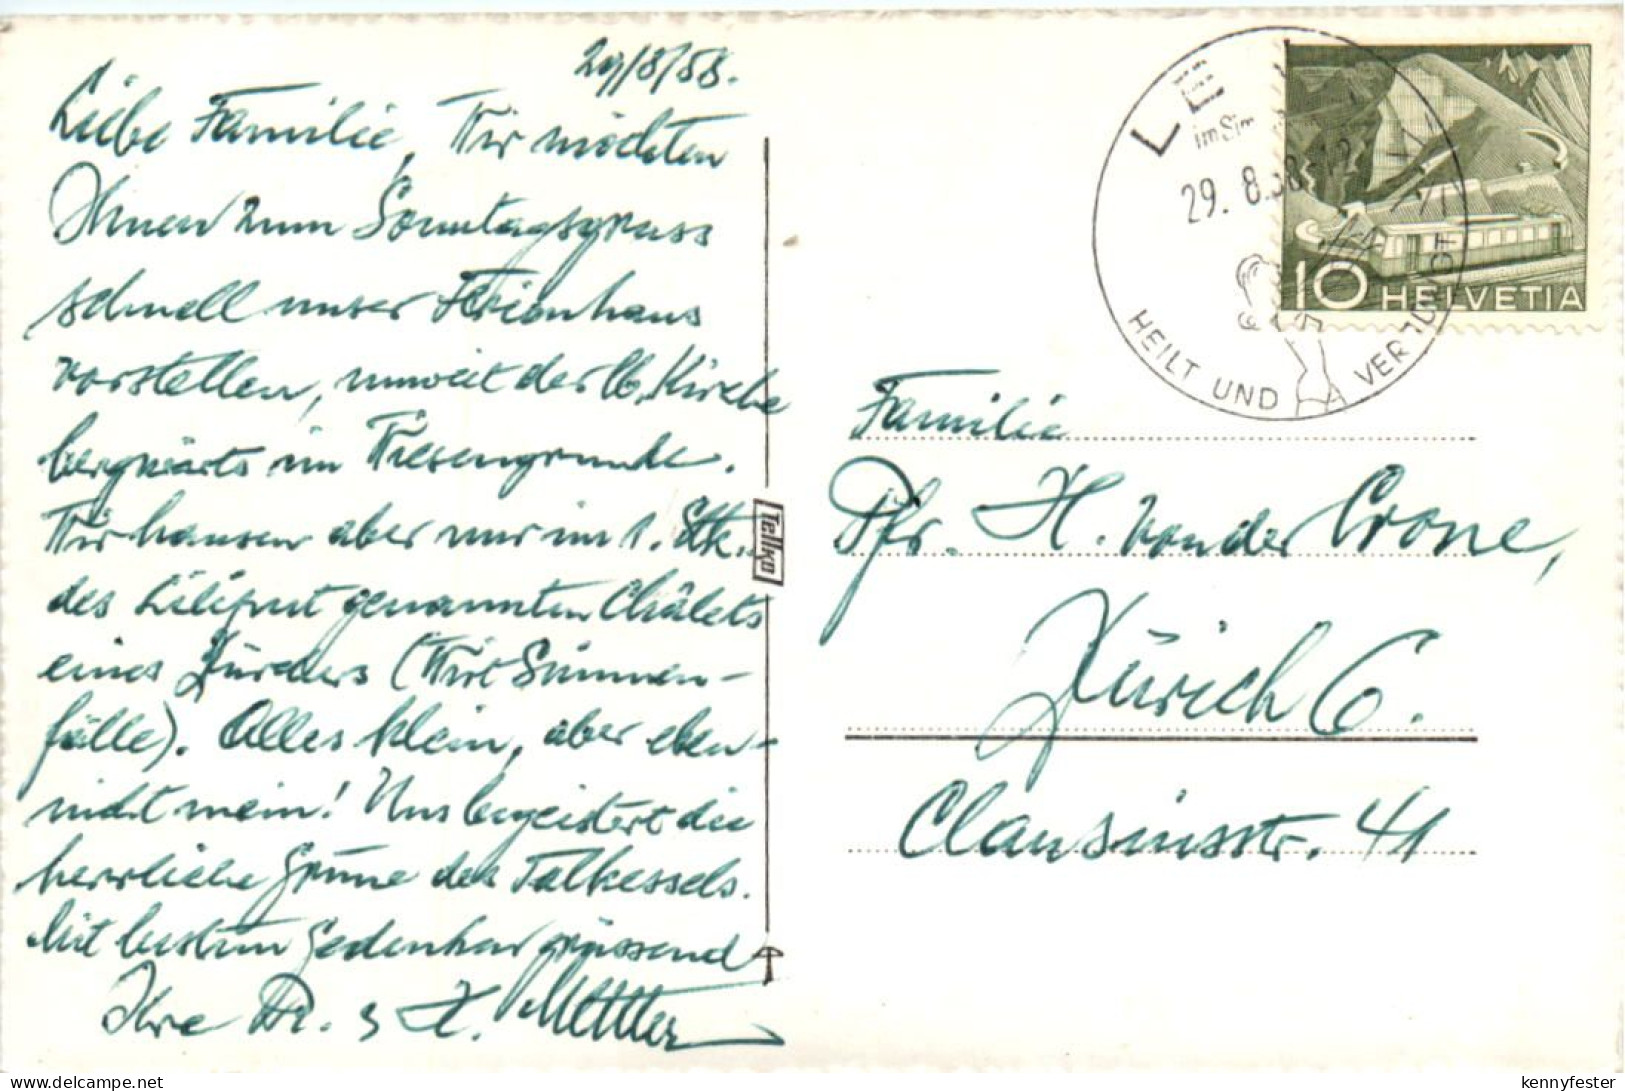 29/8/58.
Liebe Familie, Wir möchten
Ihnen zum Sonntagsgruss
schnell unser Ferienhaus
vorstellen, unweit der Kirche
bergwärts im Wiesengrunde.
Wir hausen aber nur im 1. Stk.
des Liliput genannten Châlets
eines Zürchers (Wirt Simmen-
fälle). Alles klein, aber eben-
nicht mein! Uns begeistert die
herrliche Grüne des Talkessels.
Mit bestem Gedenken grüssend
Ihre W. & H. Mettler
Tellko
LE
im Sim
29. 8. 58-12
HEILT UND VERJÜNGT
10 HELVETIA
Familie
Pfr. H. von der Crone,
Zürich 6.
Clausiusstr. 41
kennyfester